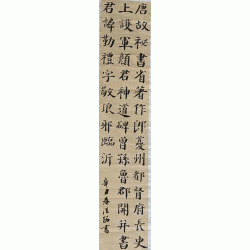 唐故祕書省著作郎夔州都督府長史
上護軍顏君神道碑曾孫魯郡開并書
君諱勤禮字敬琅邪臨沂
辛丑春書